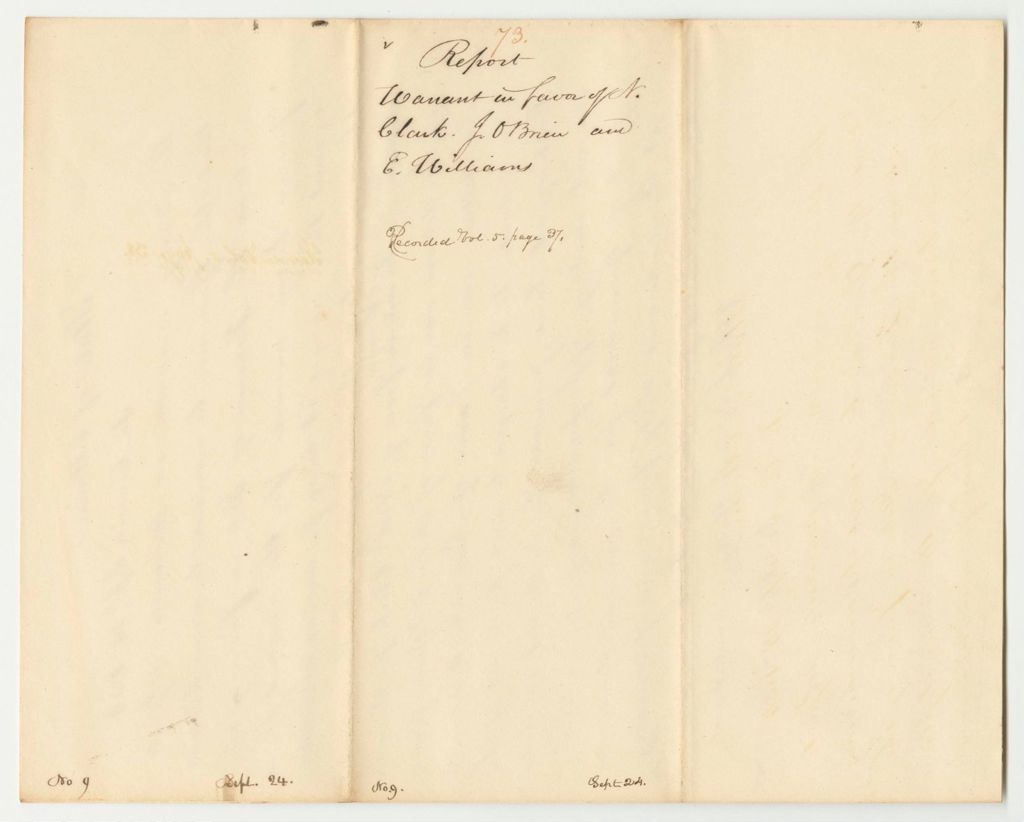 73.
Report
Warrant in favor of N.
Clark. J. OBrien and
E. Williams
Recorded Vol. 5. page 37.
No 9 Sept. 24.
No 9. Sept 24.